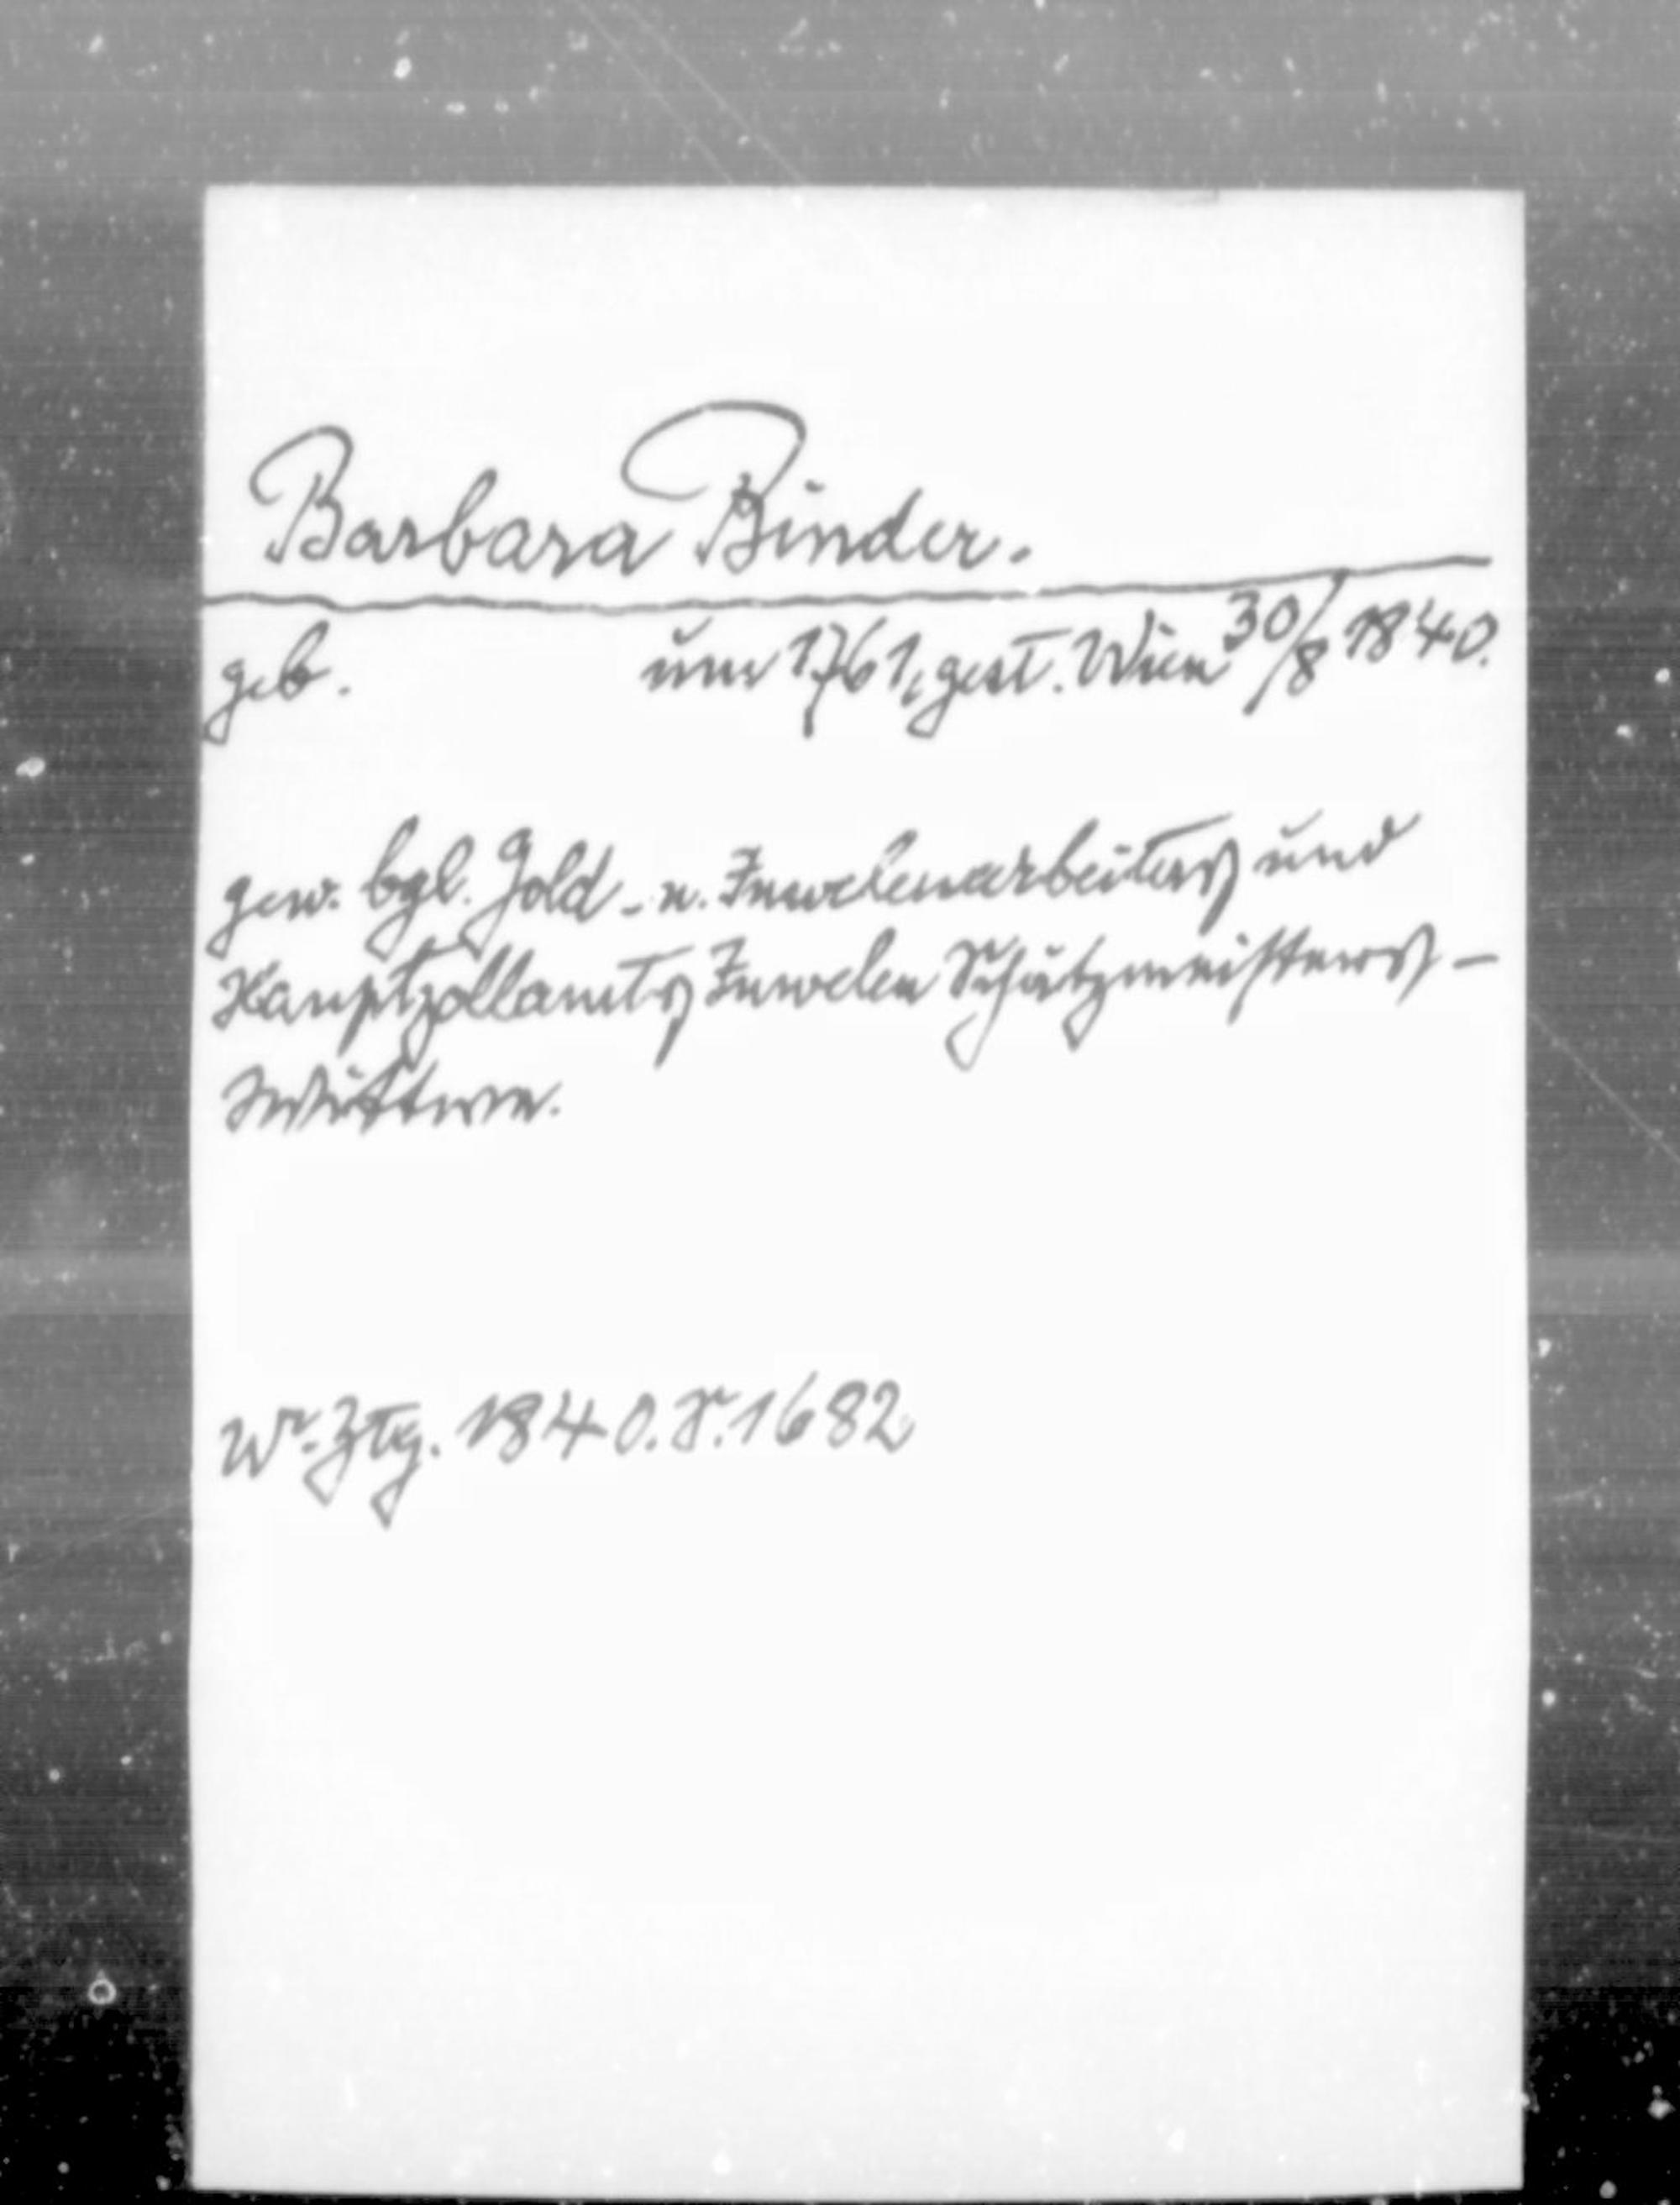 Barbara Binder.
geb. um 1761, gest. Wien 30/8 1840.
gew. bgl. Gold- u. Juwelenarbeiters und
Hauptzollamts Juwelen Schätzmeisters-
Wittwe.
Wr. Ztg. 1840. S. 1682